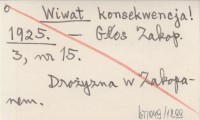 Wiwat konsekwencja!
1925. — Głos Zakop.
3, nr 15.
Drożyzna w Zakopa-
nem.